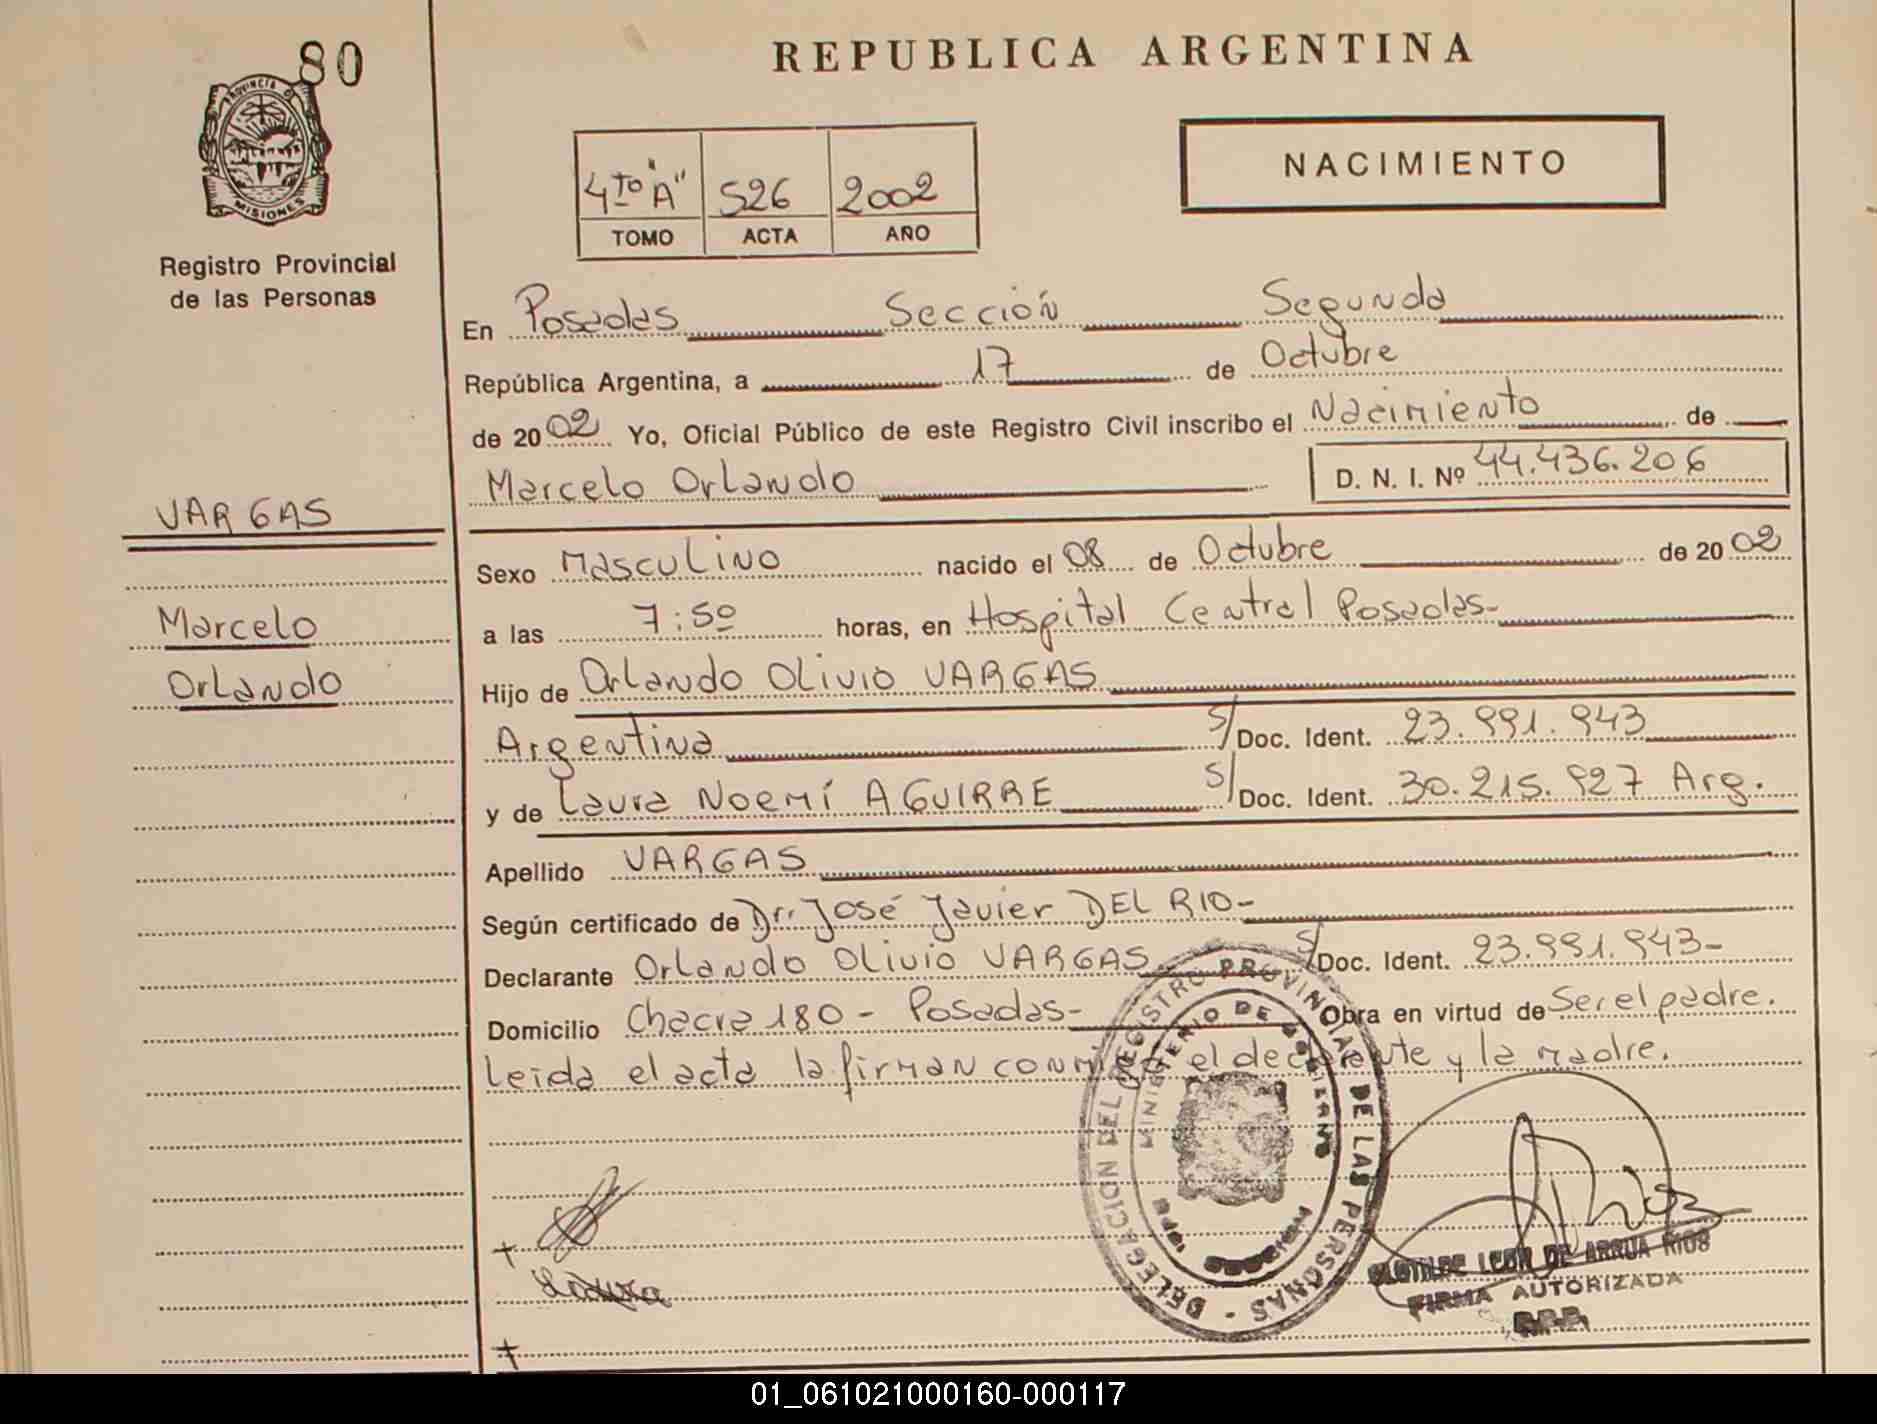 80
PROVINCIA D
MISIONES
Registro Provincial
de las Personas
REPUBLICA ARGENTINA
4to "A" 526 2002
TOMO ACTA AÑO
NACIMIENTO
En Posadas Sección Segunda
República Argentina, a 17 de Octubre
de 2002 Yo, Oficial Público de este Registro Civil inscribo el Nacimiento de
Marcelo Orlando D. N. I. Nº 44.436.206
VARGAS
Marcelo
Orlando
Sexo Masculino nacido el 08 de Octubre de 2002
a las 7:50 horas, en Hospital Central Posadas-
Hijo de Orlando Olivio VARGAS
Argentina S/ Doc. Ident. 23.991.943
y de Laura Noemí AGUIRRE S/ Doc. Ident. 30.215.927 Arg.
Apellido VARGAS
Según certificado de Dr. José Javier DEL RIO-
Declarante Orlando Olivio VARGAS S/ Doc. Ident. 23.991.943-
Domicilio Chacra 180 - Posadas- Obra en virtud de Ser el padre.
Leida el acta la firman conmigo el declarante y la madre.
DELEGACION DEL REGISTRO PROVINCIAL DE LAS PERSONAS -
MINISTERIO DE GOBIERNO
CLOTILDE LEON DE ARRUA RIOS
FIRMA AUTORIZADA
01_061021000160-000117